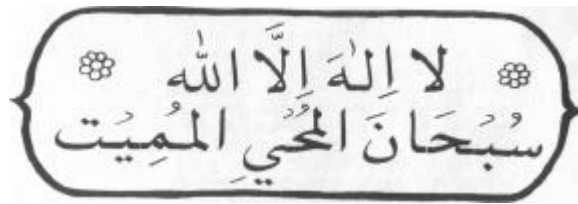 لا اِلٰهَ اِلَّا الله
سُبْحَانَ المُحْيِ المُمِيْت